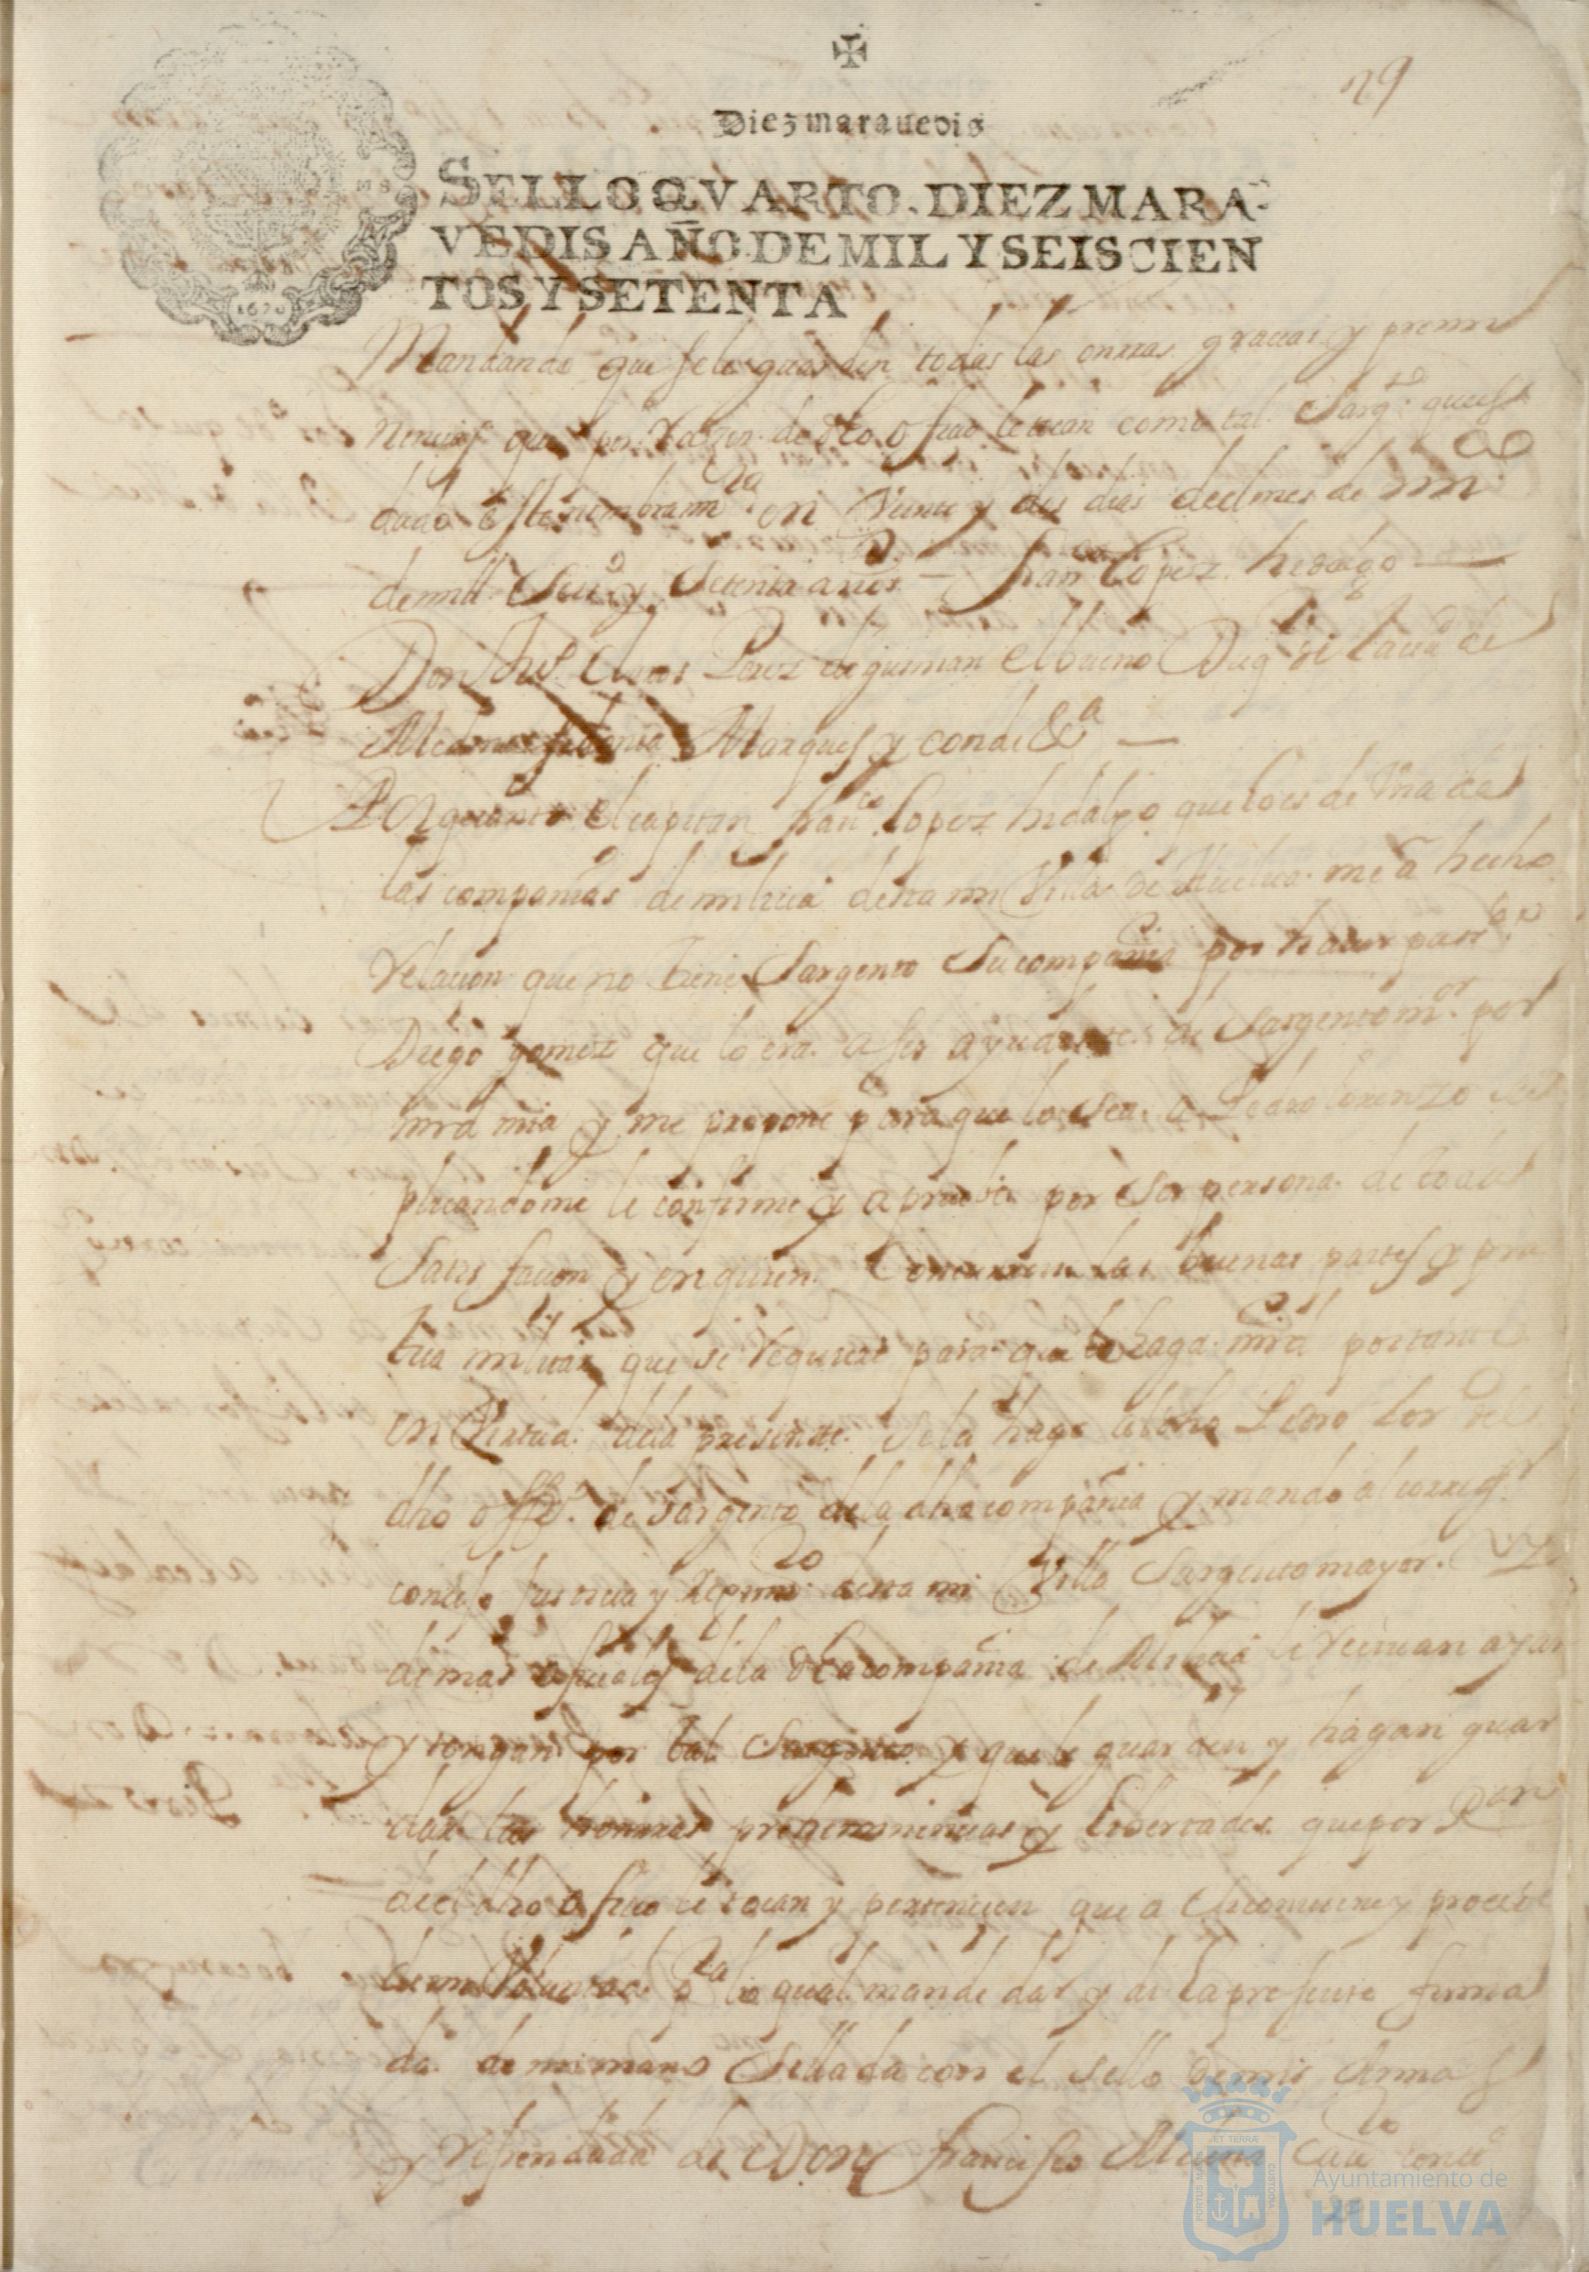 29
Diez maravedis
SELLO QVARTO. DIEZ MARA-
VEDIS AÑO DE MIL Y SEISCIEN
TOS Y SETENTA
1670
Mandando que se le guarden todas las onrras gracias y premi
nencias que por Razon de dho ofiçio le tocan como tal Sargto
dado este nombramto en Veinte y dos dias del mes de
de mil Seiso y Setenta años — Franco Lopez hidalgo —
Don Perez de guzman el bueno Duq de la ciud de
Medina sidonia Marques y conde &a —
Por quanto el capitan franco Lopez hidalgo que lo es de Vna de
las compañias de milicia desta mi Villa de Huelva me a hecho
relacion que no tiene Sargento Su compañia por haver pasdo
Diego gomez que lo era a ser ayudante de Sargento mor por
mrd mia y me propone para que lo sea a Pedro Lorenzo
plicandome le confirme y apruebe por Ser persona de toda
Satisfacion y en quien Concurren las buenas partes y pra
tica militar que se requiere para que le haga mrd por tanto
en Virtud dela presente Se la hago al dho Pedro Lor del
dho offo de Sargento de la dha compañia y mando al corregor
concejo Justicia y Regimto desta mi Villa Sargento mayor y
demas ofiçiales dela dha compañia de Milicia le reciuan ayan
y tengan por tal Sargento y que le guarden y hagan guar
dar las honrras preheminencias y libertades que por Raon
de el dho ofiçio le tocan y pertenecen que a Si conviene y procede
de mi Voluntad pa lo qual mande dar y di la presente firma
da de mi mano Sellada con el sello de mis Armas
y refrendada de Don francisco Cauo
Ayuntamiento de
HUELVA